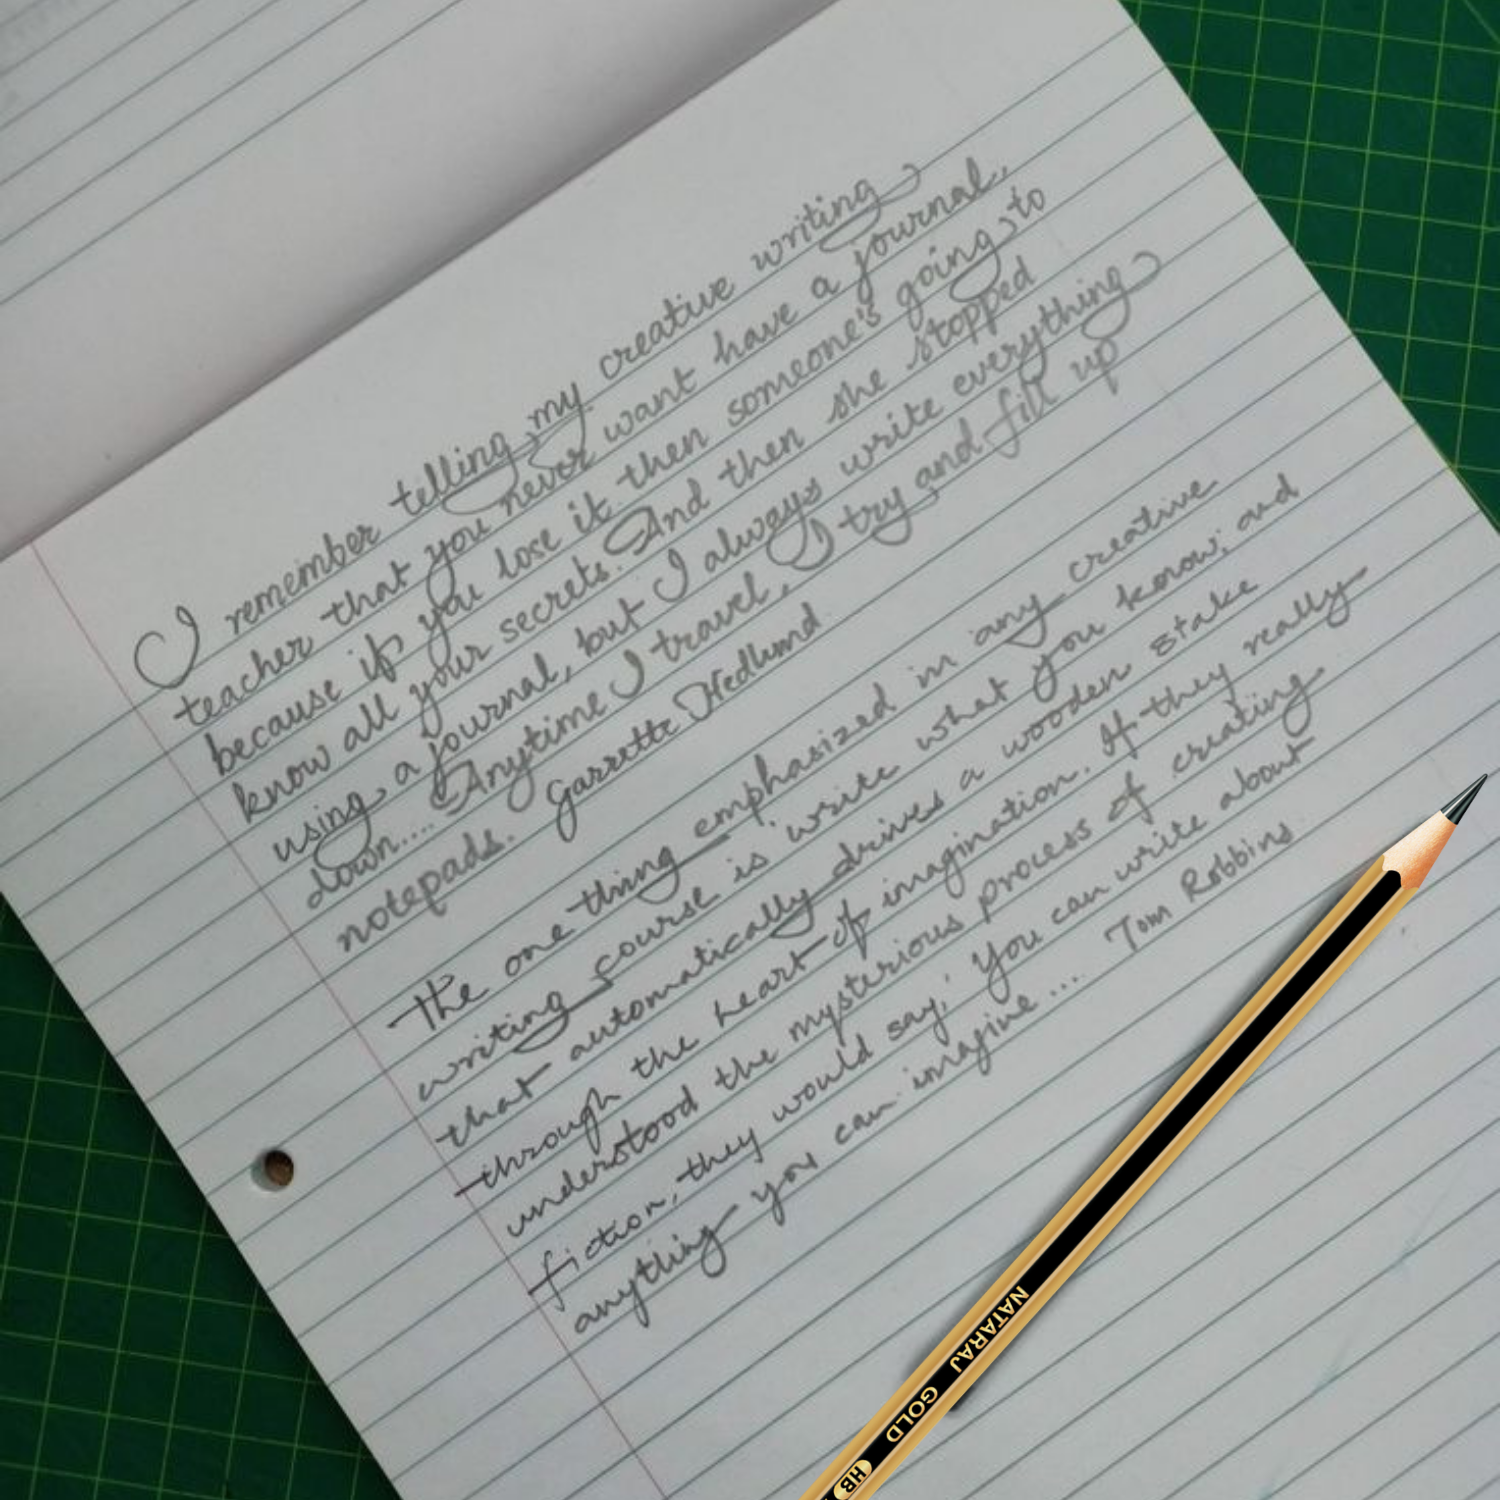 I remember telling my creative writing
teacher that you never want have a journal,
because if you lose it then someone's going to
know all your secrets. And then she stopped
using a journal, but I always write everything
down.... Anytime I travel, I try and fill up
notepads. Garrette Hedlund
The one thing emphasized in any creative
writing course is 'write what you know,' and
that automatically drives a wooden stake
through the heart of imagination. If they really
understood the mysterious process of creating
fiction, they would say, 'You can write about
anything you can imagine... Tom Robbins.
NATARAJ GOLD HB